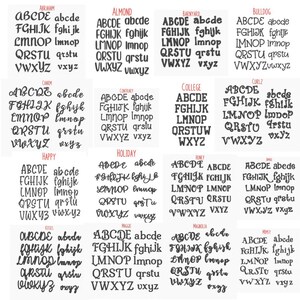 ABRAHAM
ABCDE abcde
FGHIJK fghijk
LMNOP lmnop
QRSTU qrstu
VWXYZ vwxyz
ALMOND
ABCDE abcde
FGHIJK fghijk
LMNOP lmnop
QRSTU qrstu
VWXYZ vwxyz
ABCDE abcde
FGHIJK fghijk
LMNOP lmnop
QRSTU qrstu
VWXYZ vwxyz
BULLDOG
ABCDE abcde
FGHIJK fghijk
LMNOP lmnop
QRSTU qrstu
VWXYZ vwxyz
ABCDE abcde
FGHIJK fghijk
LMNOP lmnop
QRSTU qrstu
VWXYZ vwxyz
ABCDE abcde
FGHIJK fghijk
LMNOP lmnop
QRSTU qrstu
VWXYZ vwxyz
COLLEGE
ABCDE abcde
FGHIJK fghijk
LMNOP lmnop
QRSTU qrstu
VWXYZ vwxyz
ABCDE abcde
FGHIJK fghijk
LMNOP lmnop
QRSTU qrstu
VWXYZ vwxyz
HAPPY
ABCDE abcde
FGHIJK fghijk
LMNOP lmnop
QRSTU qrstu
VWXYZ vwxyz
HOLIDAY
ABCDE abcde
FGHIJK fghijk
LMNOP lmnop
QRSTU qrstu
VWXYZ vwxyz
ABCDE abcde
FGHIJK fghijk
LMNOP lmnop
QRSTU qrstu
VWXYZ vwxyz
ABCDE abcde
FGHIJK fghijk
LMNOP lmnop
QRSTU qrstu
VWXYZ vwxyz
ABCDE abcde
FGHIJK fghijk
LMNOP lmnop
QRSTU qrstu
VWXYZ vwxyz
ABCDE abcde
FGHIJK fghijk
LMNOP lmnop
QRSTU qrstu
VWXYZ vwxyz
ABCDE abcde
FGHIJK fghijk
LMNOP lmnop
QRSTU qrstu
VWXYZ vwxyz
ABCDE abcde
FGHIJK fghijk
LMNOP lmnop
QRSTU qrstu
VWXYZ vwxyz